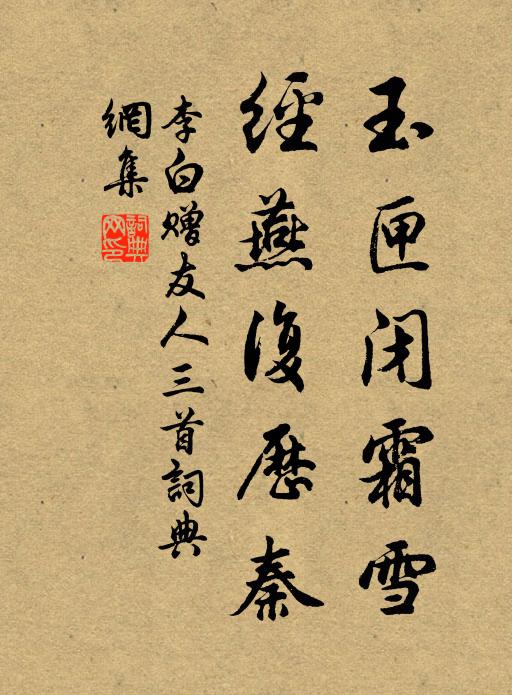 玉匣闭霜雪
經燕復歷秦
李白赠友人三首詞典
網集
詞典
网印